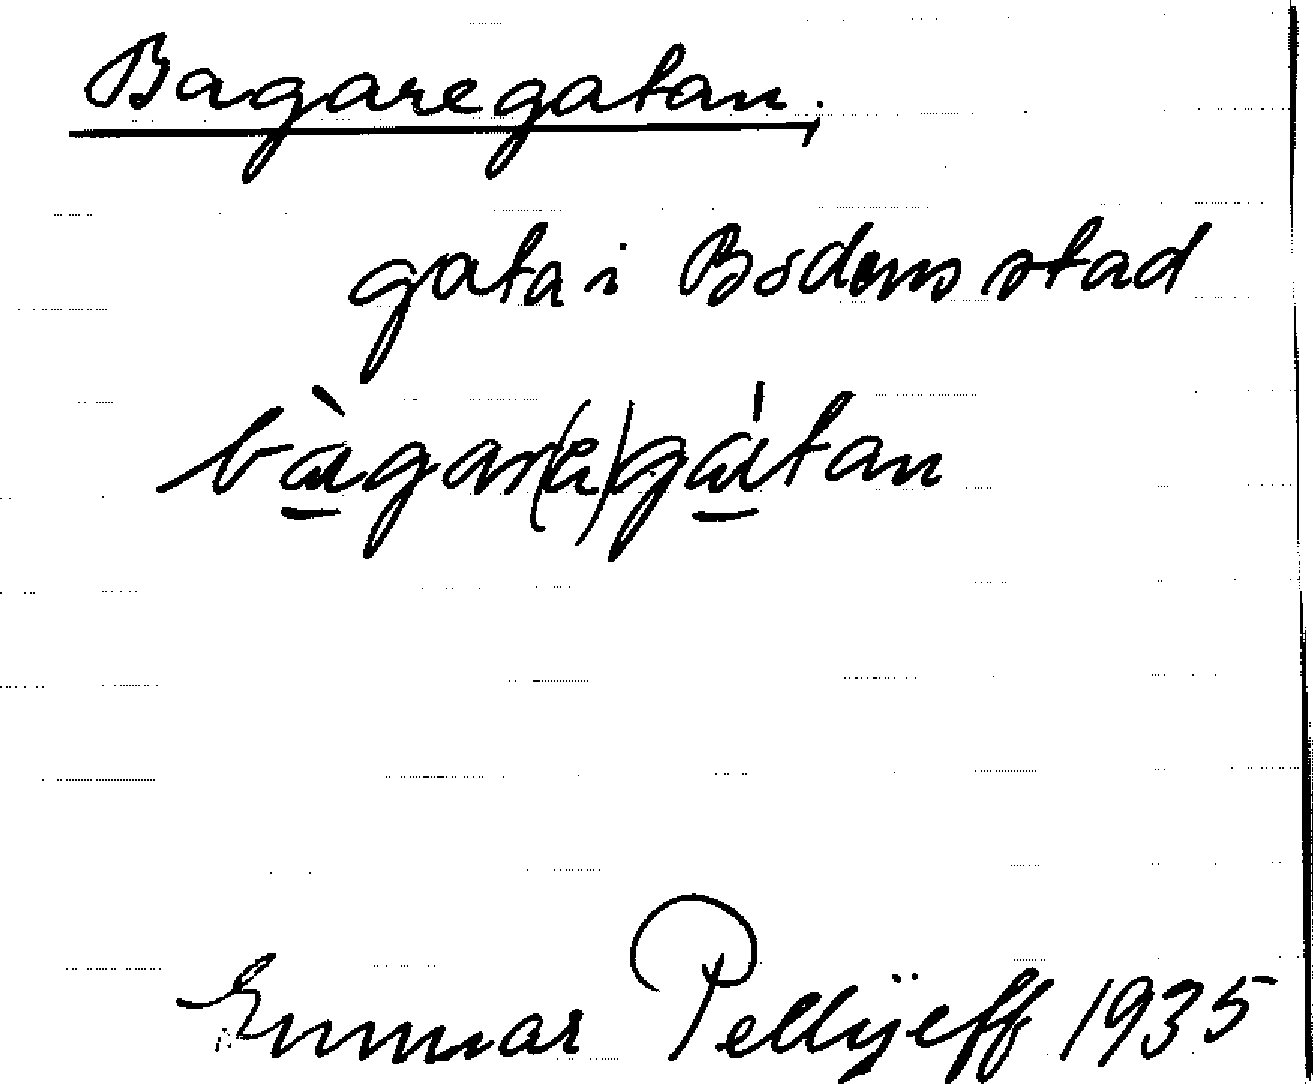 Bagaregatan,
gata i Bodens stad
bàgar(e)gátan
Gunnar Pellijeff 1935